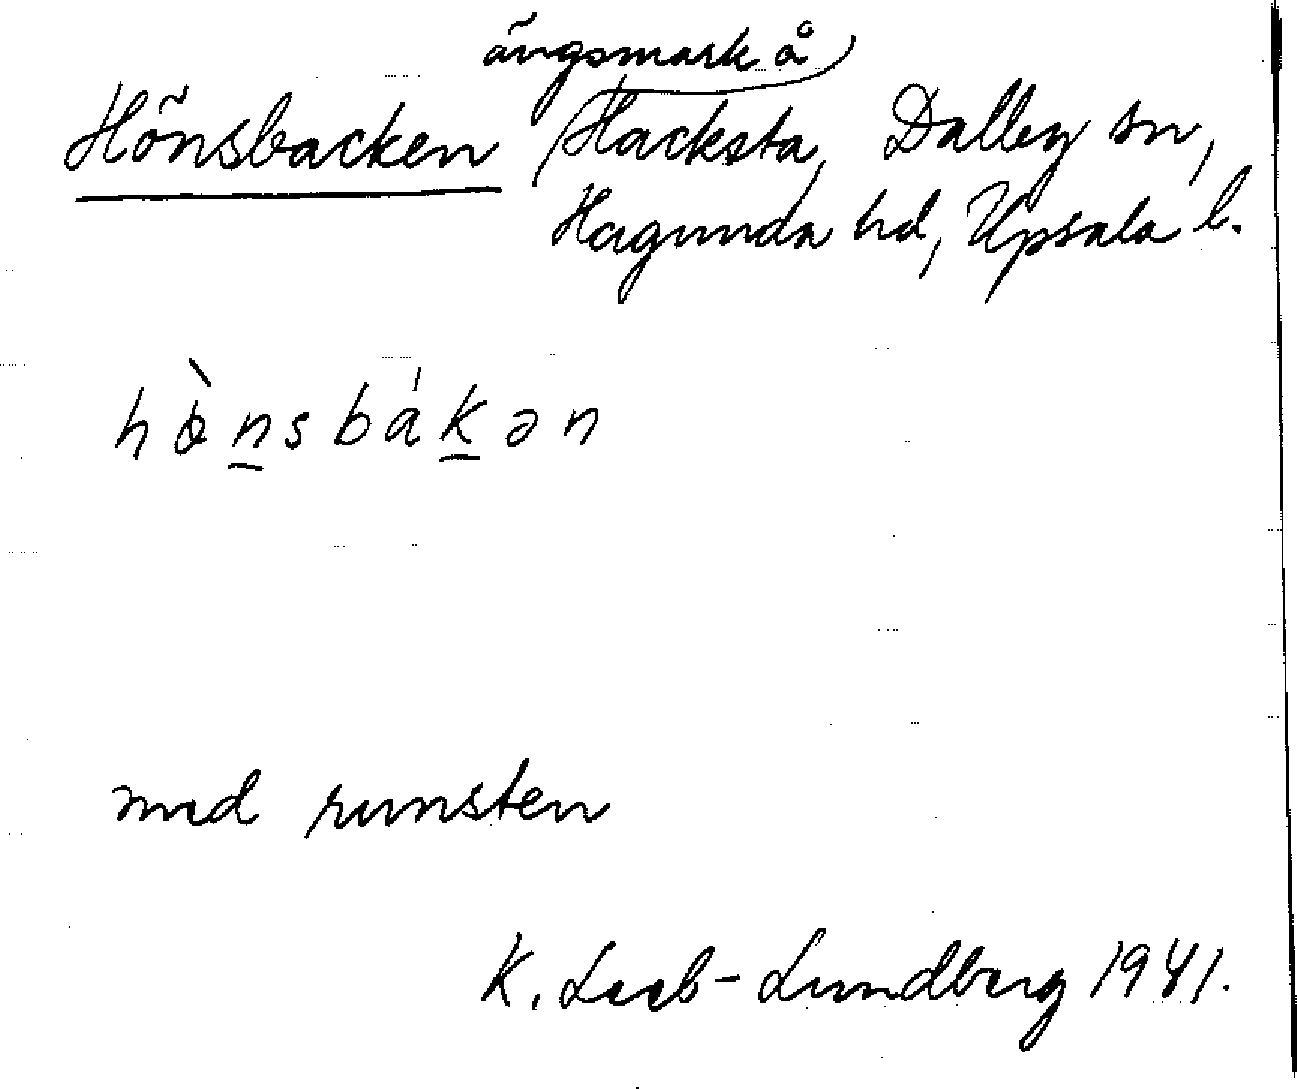 ängsmark å
Hönsbacken Hacksta, Dalby sn,
Hagunda hd, Upsala l.
hὸ̱nsbákən
med runsten
K. Leeb-Lundberg 1941.